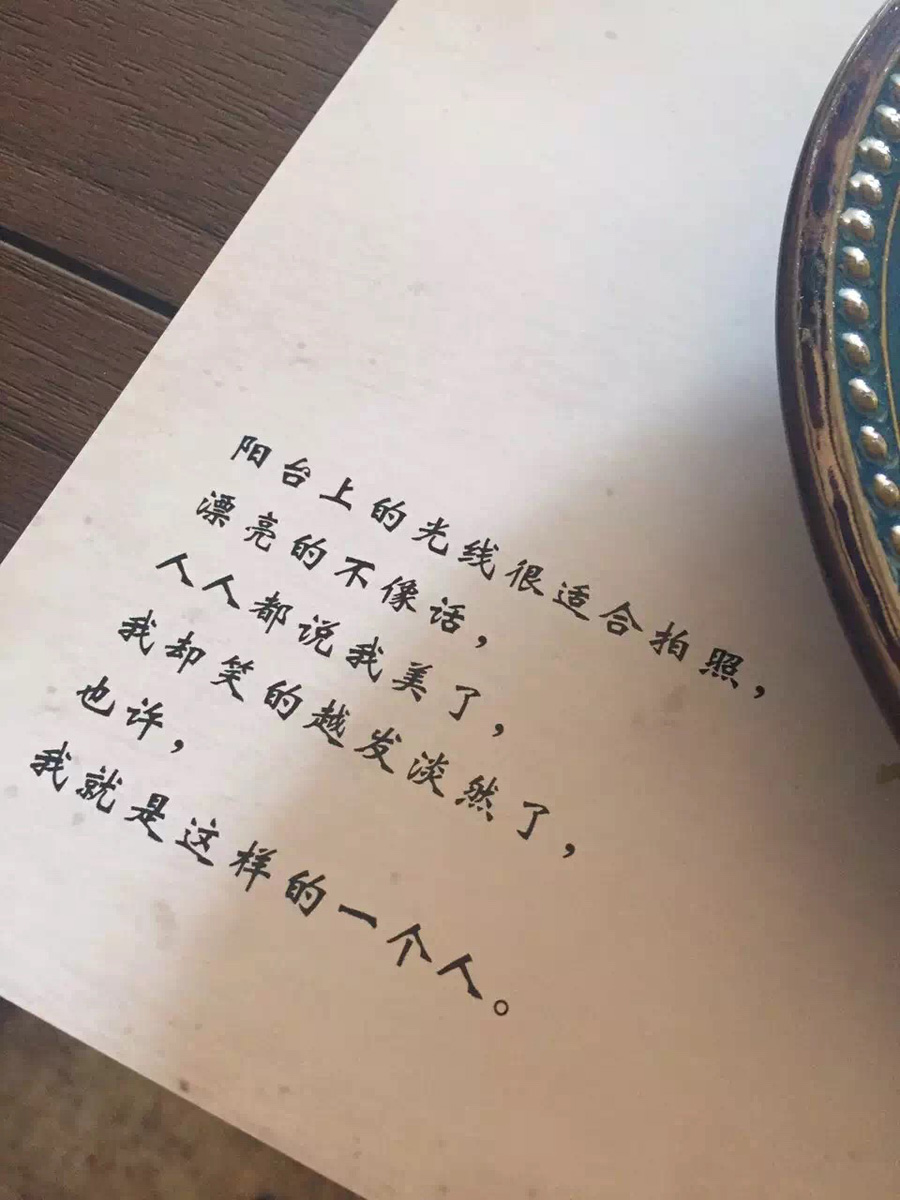 阳台上的光线很适合拍照，
漂亮的不像话，
人人都说我美了，
我却笑的越发淡然了，
也许，
我就是这样的一个人。